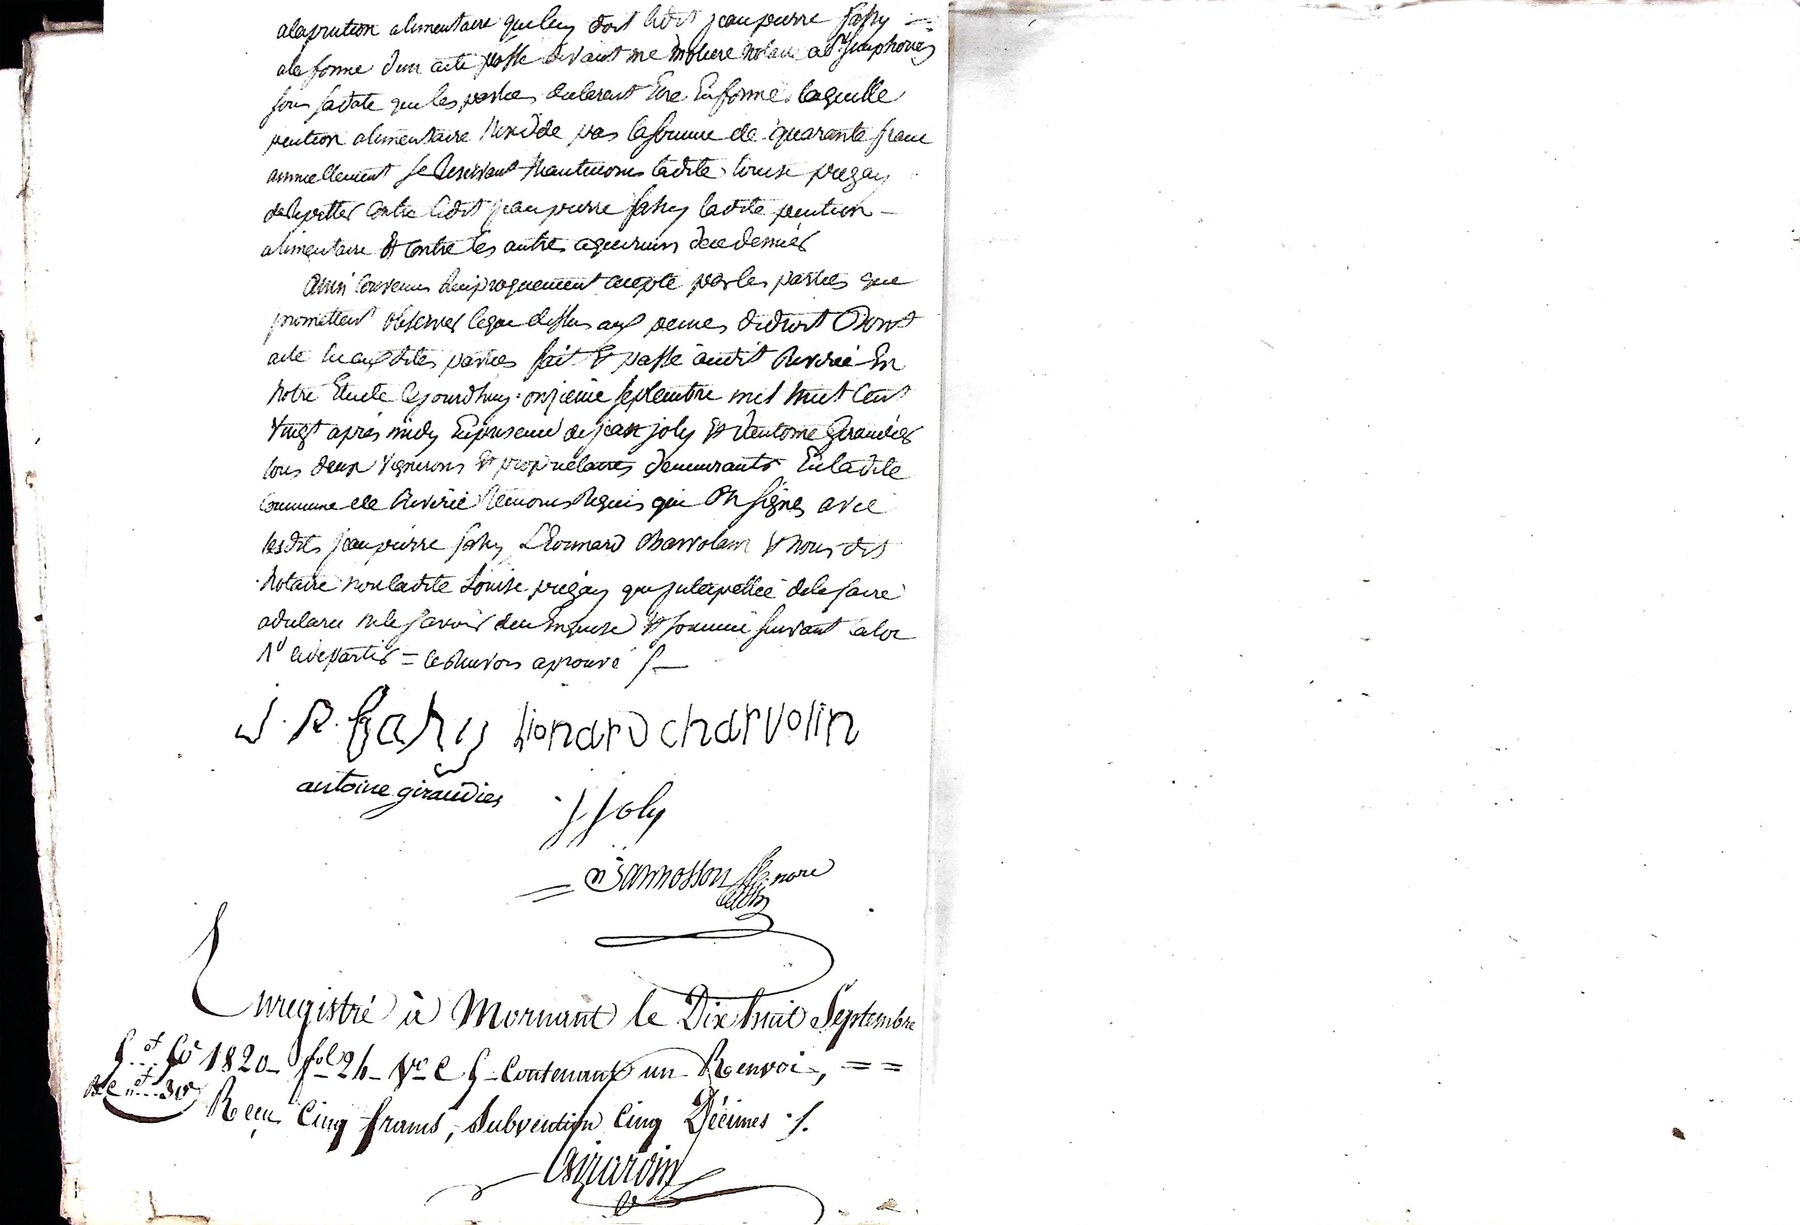 alapention alimentaire que luy doit ledit jean pierre fahy
ala forme dun acte passé devant me moliere notaire a St Simphorien
sous sadate que les parties declarent Etre En forme laquelle
pention alimentaire Nexcède pas la somme de quarante franc
annuellement se Reservant Neantmoins ladite louise
contre ledit jean pierre fahy ladite pention
alimentaire & contre les autres aquereurs dece dernier
Ainsi convenu Reciproquement accepté par les parties que
promettent observer ceque dessus aux peines dedroit Dont
acte lu auxdites parties fait & passé audit Riverie En
Notre Etude cejourdhuy onzieme septembre mil huit Cent
Vingt après midy En presence de jean joly & dantoine Giraudier
tous deux Vignerons & propriétaires demeurants En ladite
commune de Riverie Temoins Requis qui On signés avec
lesdits jean pierre fahy Léonnard Charvolain & Nous dit
Notaire non ladite Louise quia de le faire
adeclaré ne le savoir dece Enquise & sommée suivant la loi
= le Renvois aprouvé
J. P. fahy lionard charvolin
antoine giraudier
j joly
Jannosson nore
Enregistré à Mornant le Dix huit Septembre
1820 fol 24 Vo C 5 Contenant un Renvoi, = =
Reçu Cinq francs, Subvention Cinq Décimes
Girardin